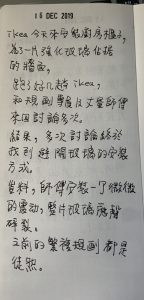 16 DEC 2019
ikea今天來安裝廚房櫃子,
為了一片強化玻璃佔據
的牆面,
跑了好幾趟ikea,
和規劃專員及丈量師傅
來回討論多次。
結果,多次討論終於
找到避開玻璃的安裝
方式。
豈料,師傅安裝一個微微
的震動,整片玻璃應聲
碎裂。
之前的繁複規劃都是
徒然。